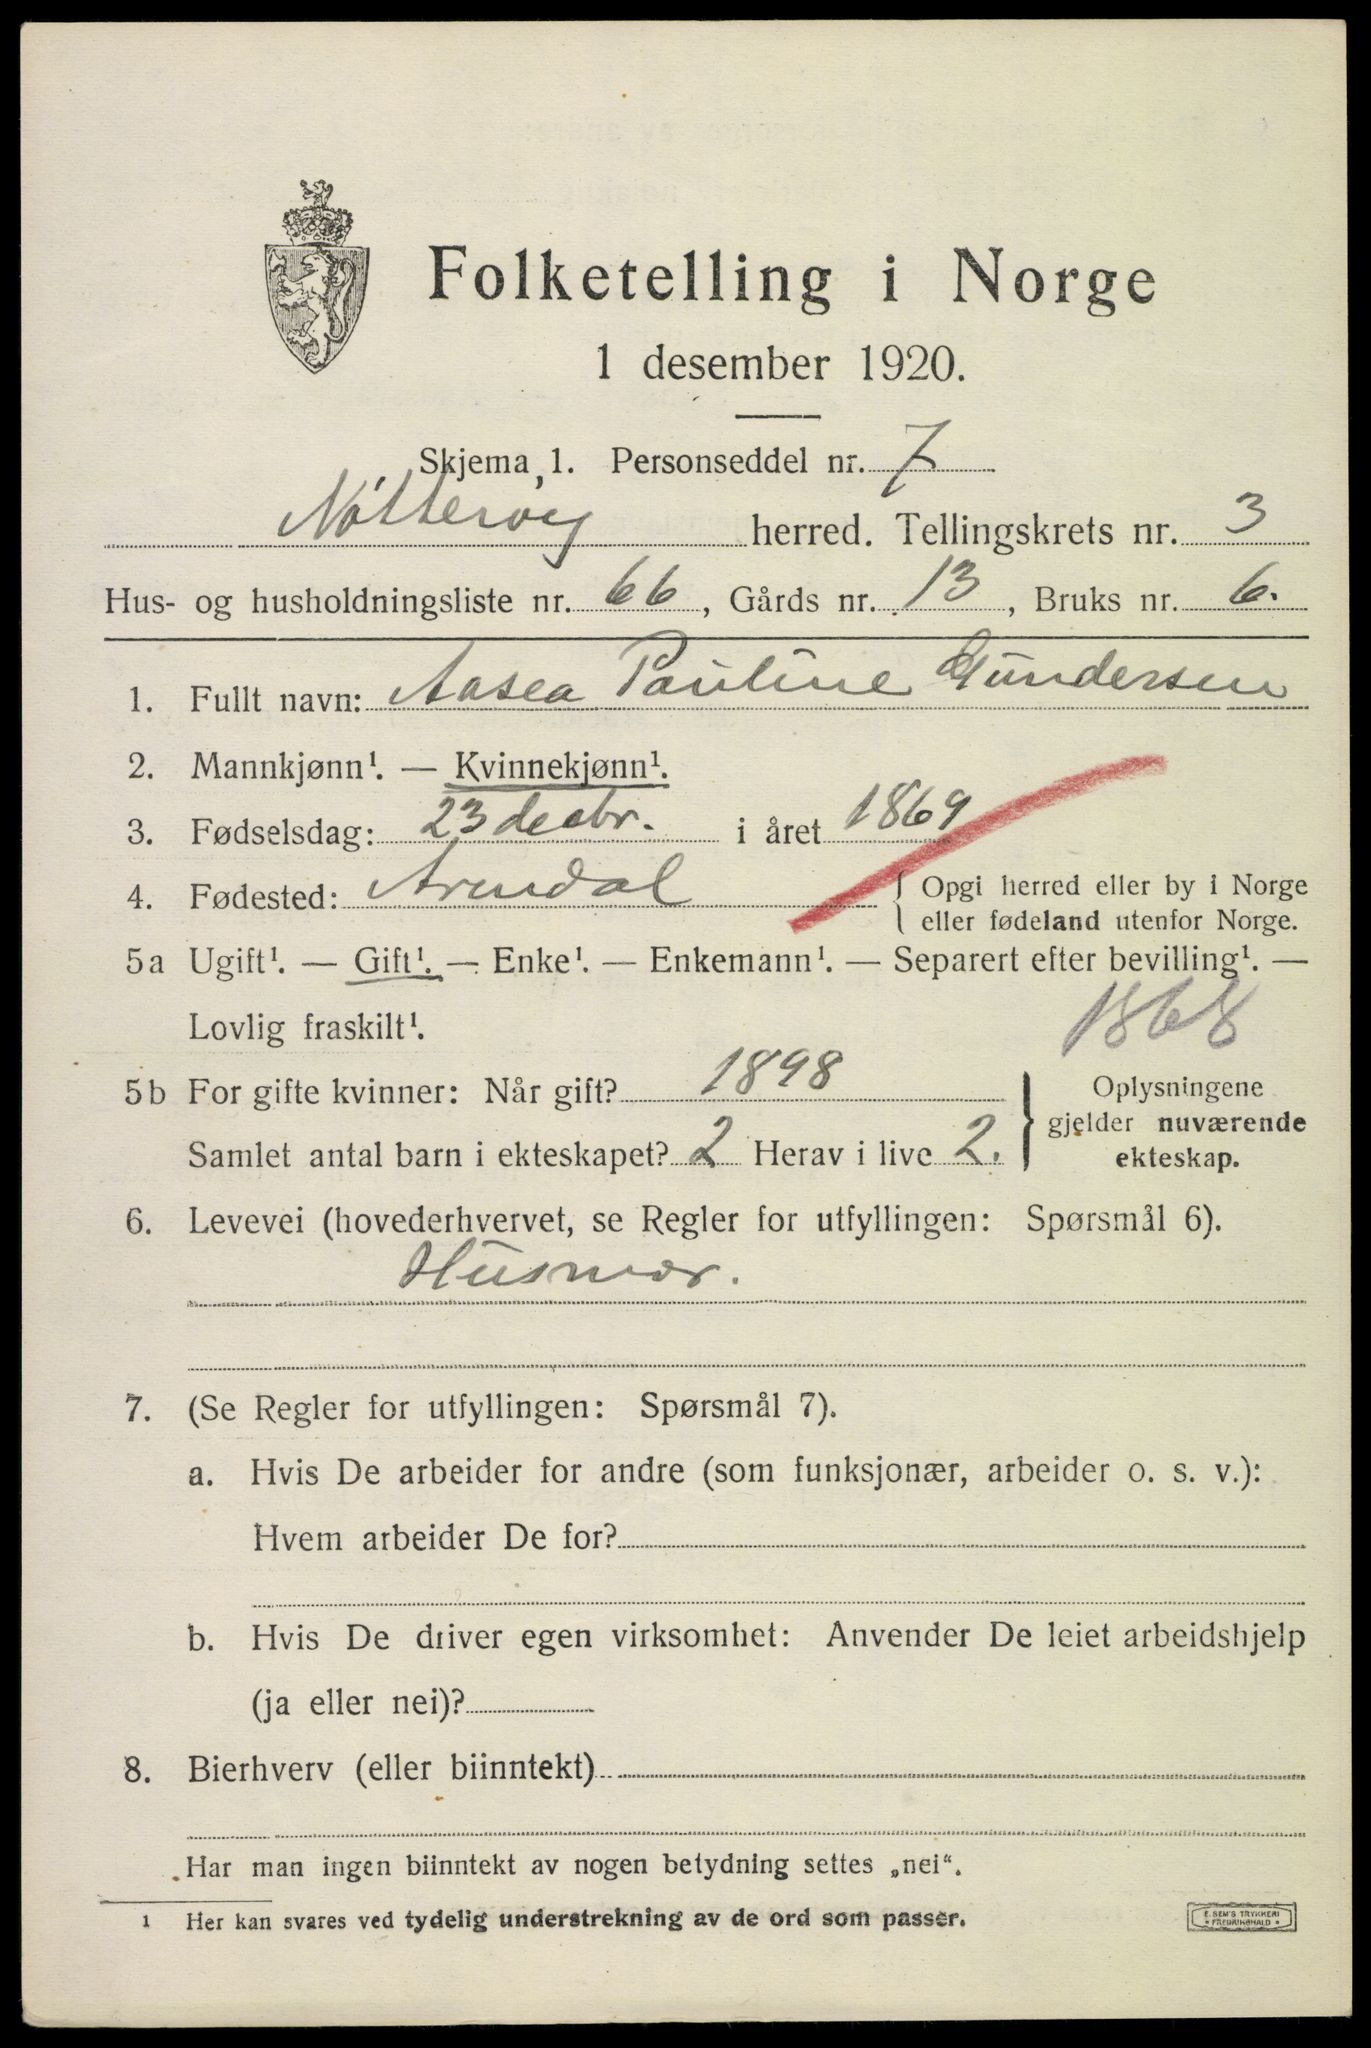 Folketelling i Norge
1 desember 1920.
Skjema 1. Personseddel nr. 7
Nøtterøy herred. Tellingskrets nr. 3
Hus- og husholdningsliste nr. 66, Gårds nr. 13, Bruks nr. 6.
1. Fullt navn: Aasea Pauline Gundersen
2. Mannkjønn¹. — Kvinnekjønn¹.
3. Fødselsdag: 23 decbr. i året 1869
4. Fødested: Arendal { Opgi herred eller by i Norge
eller fødeland utenfor Norge.
5a Ugift¹. — Gift¹. — Enke¹. — Enkemann¹. — Separert efter bevilling¹. —
Lovlig fraskilt¹. 1868
5b For gifte kvinner: Når gift? 1898
Samlet antal barn i ekteskapet? 2 Herav i live 2.
} Oplysningene
gjelder nuværende
ekteskap.
6. Levevei (hovederhvervet, se Regler for utfyllingen: Spørsmål 6).
Husmor.
7. (Se Regler for utfyllingen: Spørsmål 7).
a. Hvis De arbeider for andre (som funksjonær, arbeider o. s. v.):
Hvem arbeider De for?
b. Hvis De driver egen virksomhet: Anvender De leiet arbeidshjelp
(ja eller nei)?
8. Bierhverv (eller biinntekt)
Har man ingen biinntekt av nogen betydning settes „nei“.
1 Her kan svares ved tydelig understrekning av de ord som passer.
E. SEM'S TRYKKERI
• FREDRIKSHALD •